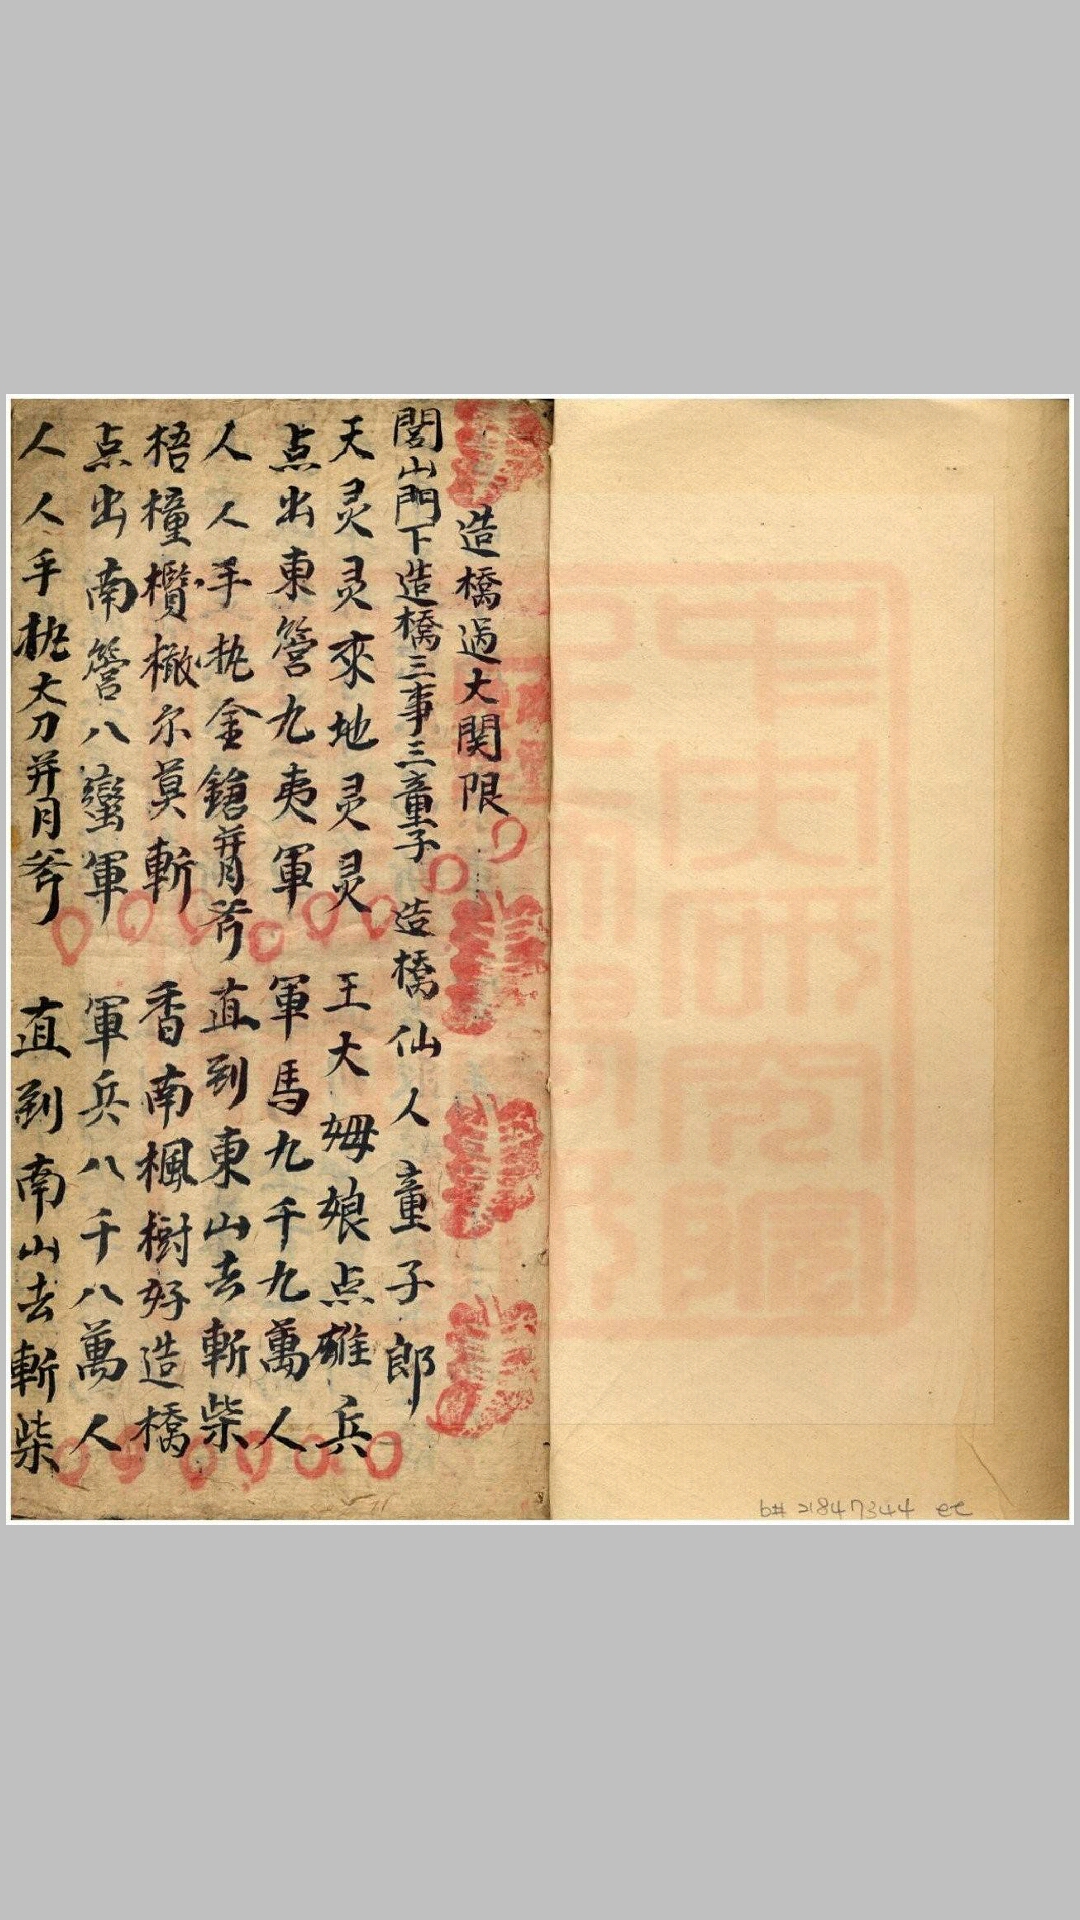 造橋過大関限
閭山門下造橋三事三童子 造橋仙人童子郎
天灵灵來地灵灵 王大姆娘点雄兵
点出東營九夷軍 軍馬九千九萬人
人人手执金鎗并月斧 直到東山去斬柴
梧橦欖橄尔莫斬 香南楓樹好造橋
点出南營八蠻軍 軍兵八千八萬人
人人手执大刀并月斧 直到南山去斬柴
b# 21847344 ec